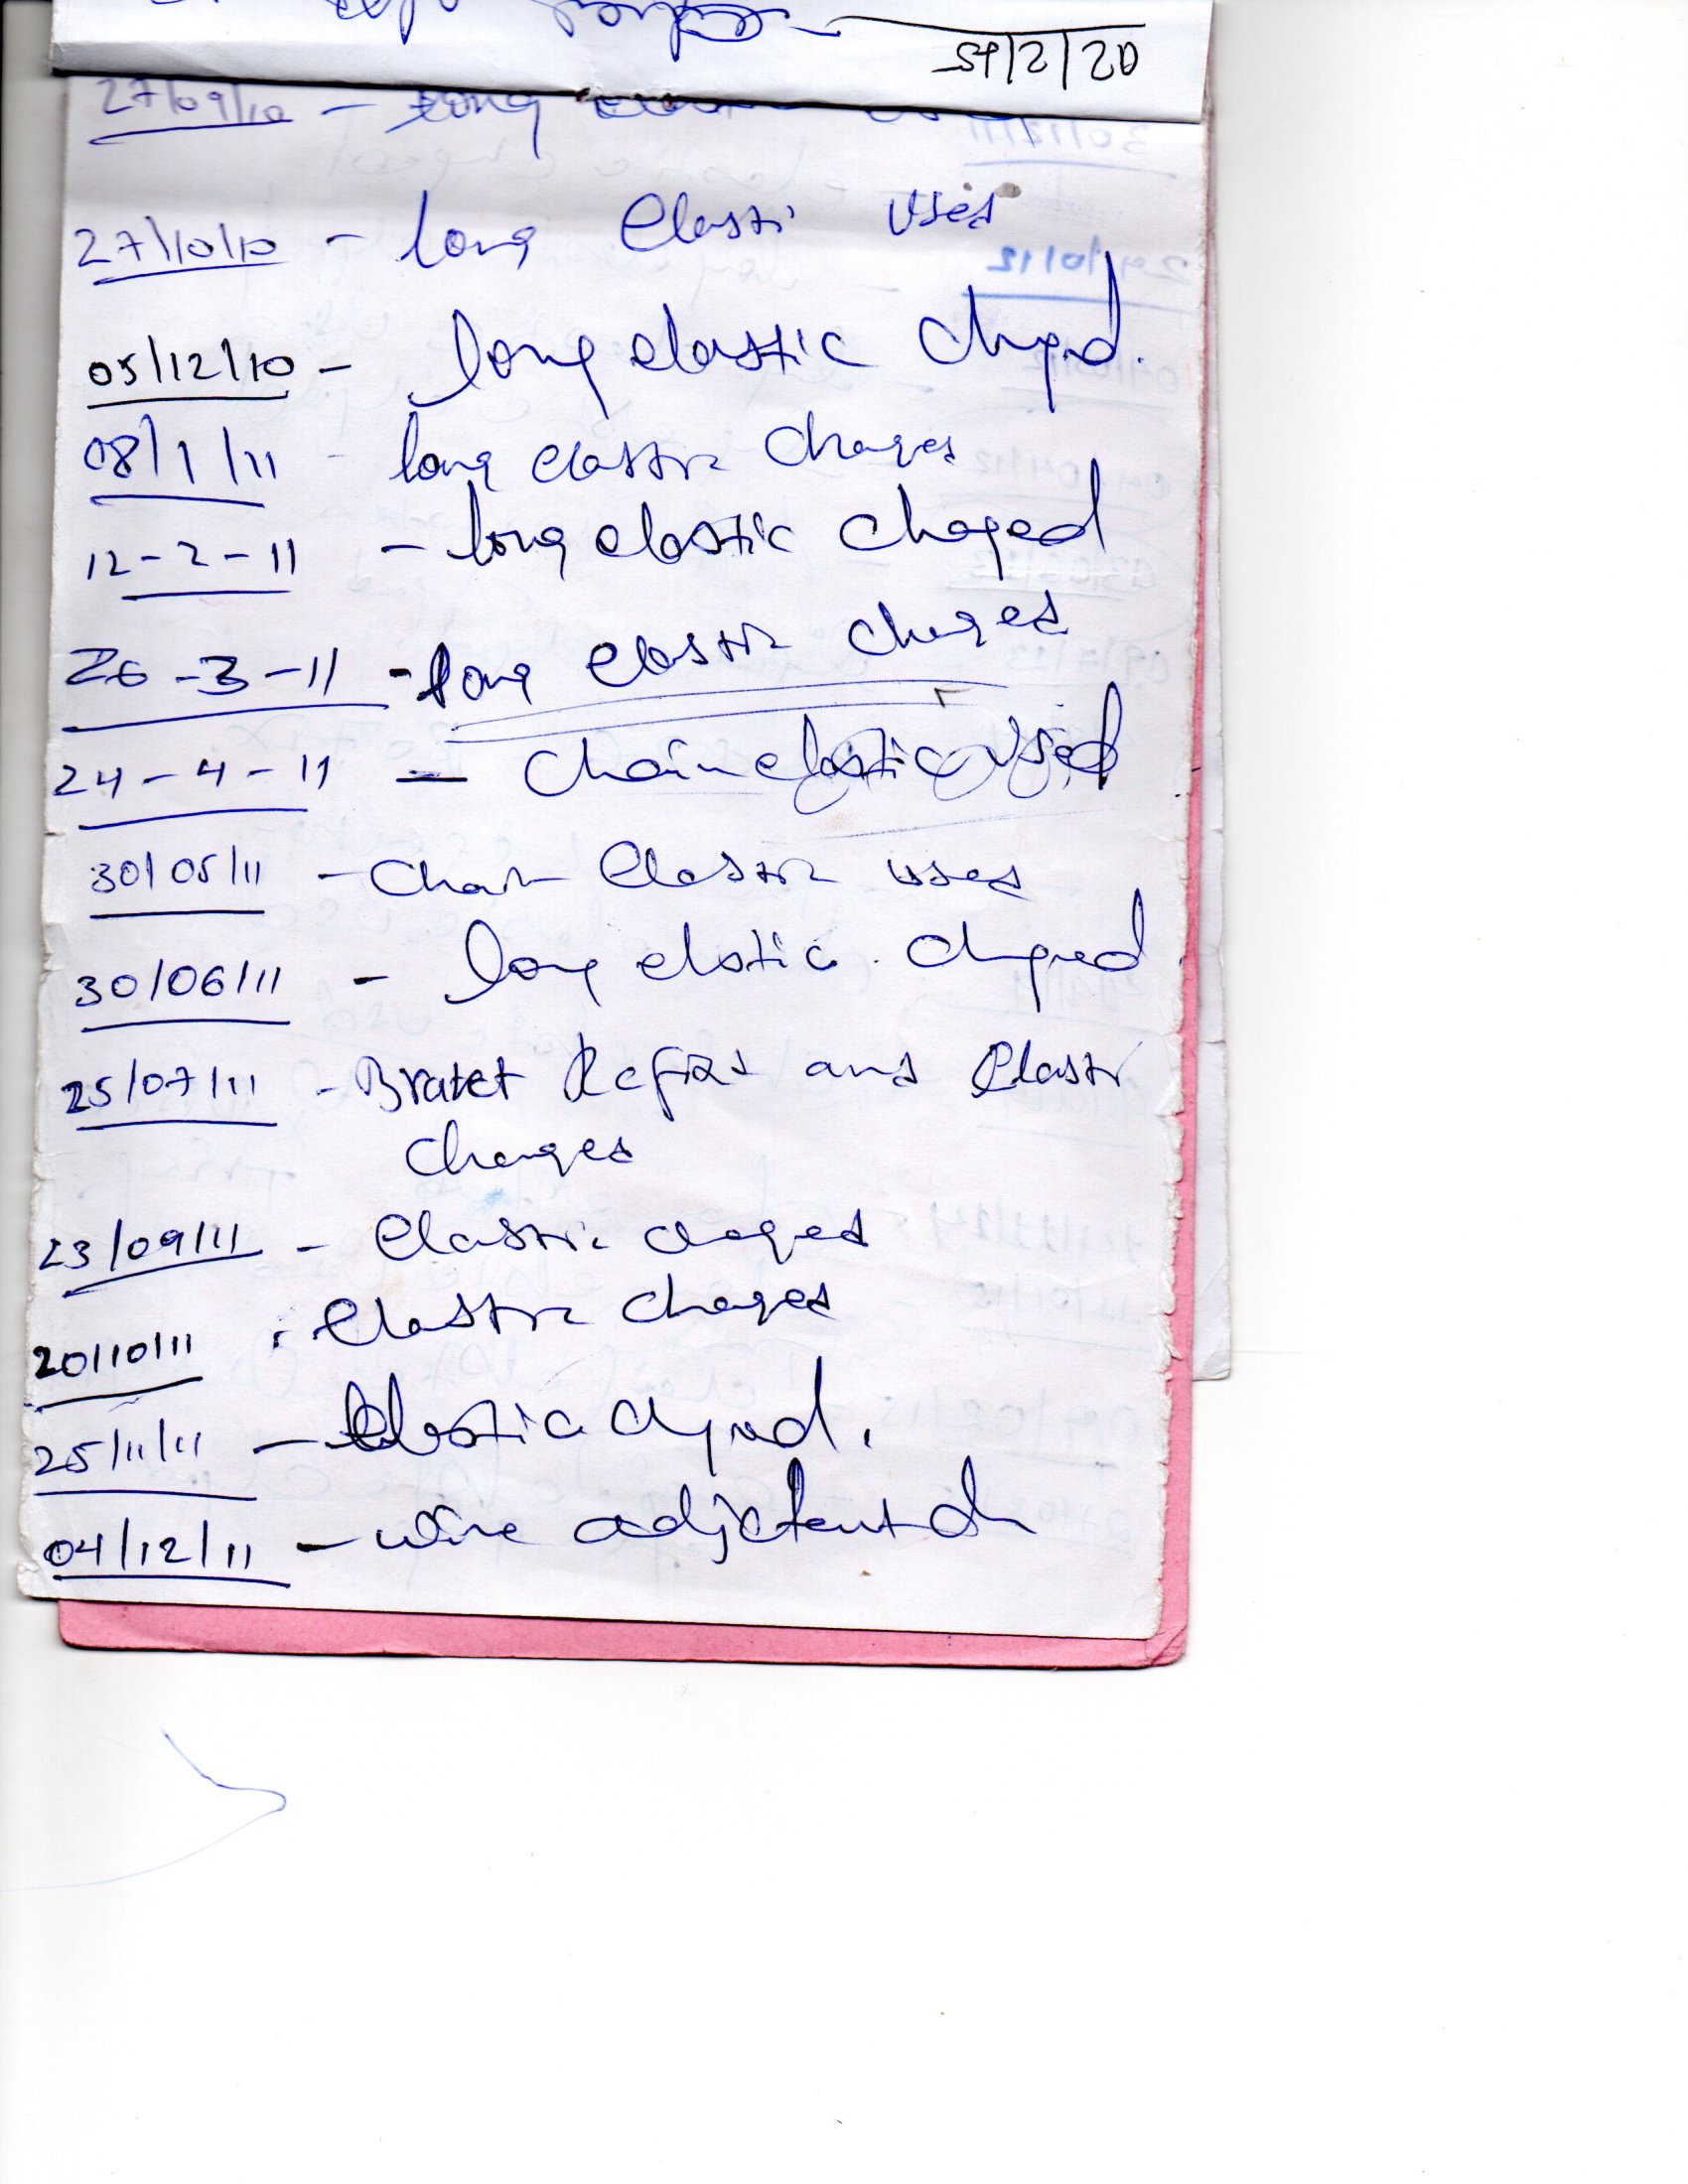 27/09/10 - long
27/10/10 - long Elasti uses
05/12/10 - long elastic chged.
08/1/11 - long elastic changes
12-2-11 - long elastic chaged
26-3-11 - long elastic changed
24-4-11 - Chain elastic used
30/05/11 - Chain Elastic used
30/06/11 - long elstic chged
25/07/11 - Braket Refixs and Elasti
changes
23/09/11 - Elastic chaged
20/10/11 - Elastic chages
25/11/11 - Elastic chged.
04/12/11 - wire